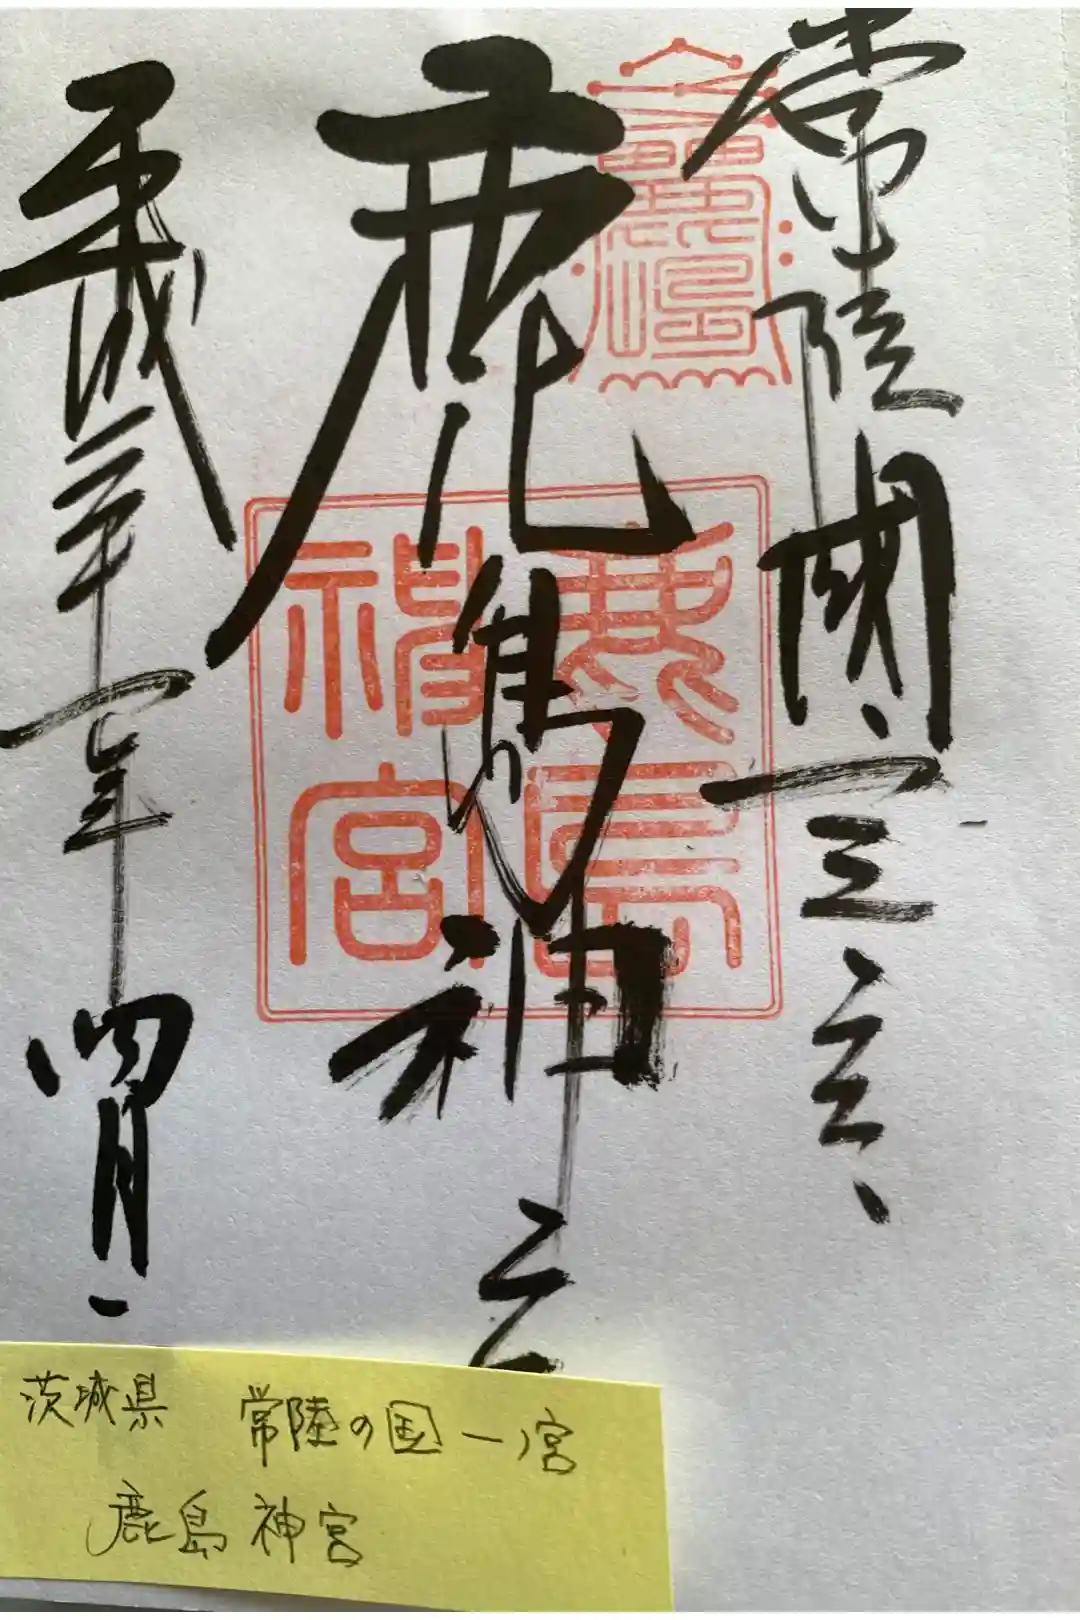 常陸國一之宮
鹿島神宮
平成二十一年四月
鹿島
神宮
茨城県 常陸の国一ノ宮
鹿島神宮